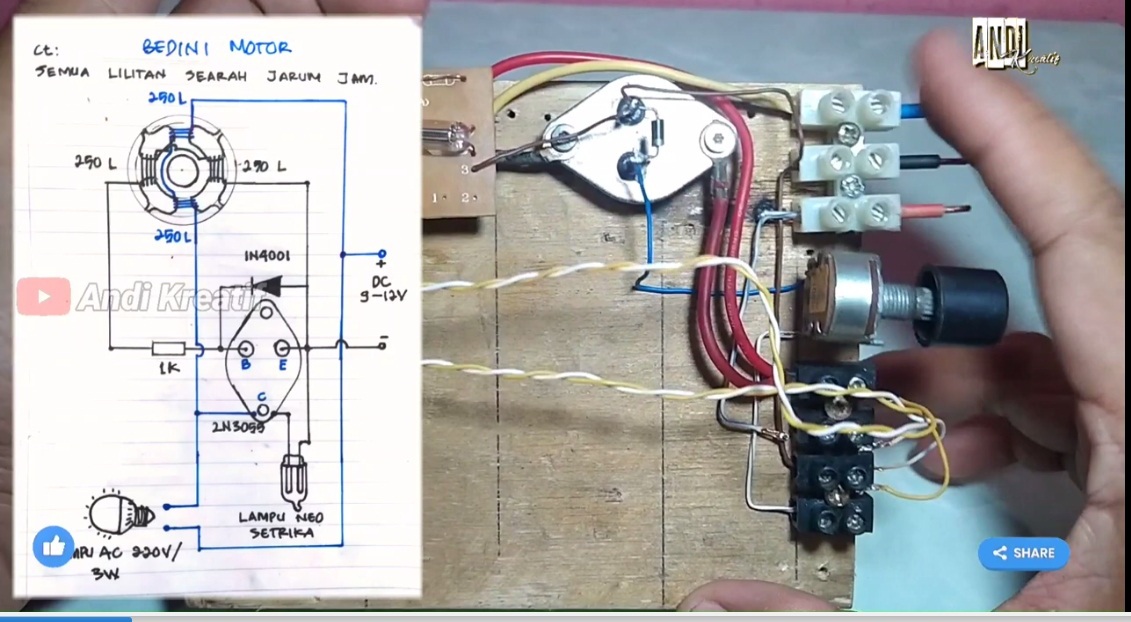 Ct:
BEDINI MOTOR
SEMUA LILITAN SEARAH JARUM JAM.
250 L
250 L
250 L
250 L
1N4001
+
DC
9-12V
-
1K
B
E
C
2N3055
LAMPU NEO
SETRIKA
MPU AC 220V/
3W
Andi Kreatif
3
1
2
ANDI
Kreatif
SHARE